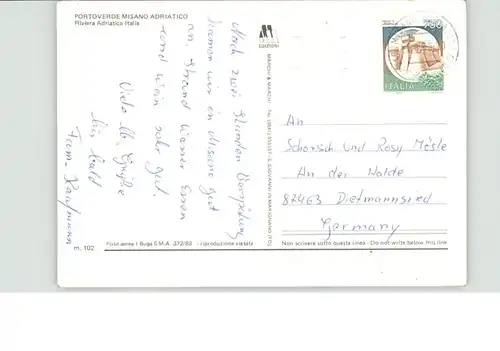 PORTOVERDE MISANO ADRIATICO
Riviera Adriatica Italia
Nach zwei Stunden Verspätung
kamen wir in Misano gut
an. Strand, Wasser, Essen
und Wein sehr gut.
Viele lb. Grüße
Ihr
Fam. Kaufmann
EDIZIONI
MARCHI & MARCHI
Foto aerea I Buga S.M.A. 372/83 - riproduzione vietata
m. 102
750
ITALIA
An
Schorsch und Rosy Mösle
An der Halde
87463 Dietmannsried
Germany
Non scrivere sotto questa linea - Do not write below this line